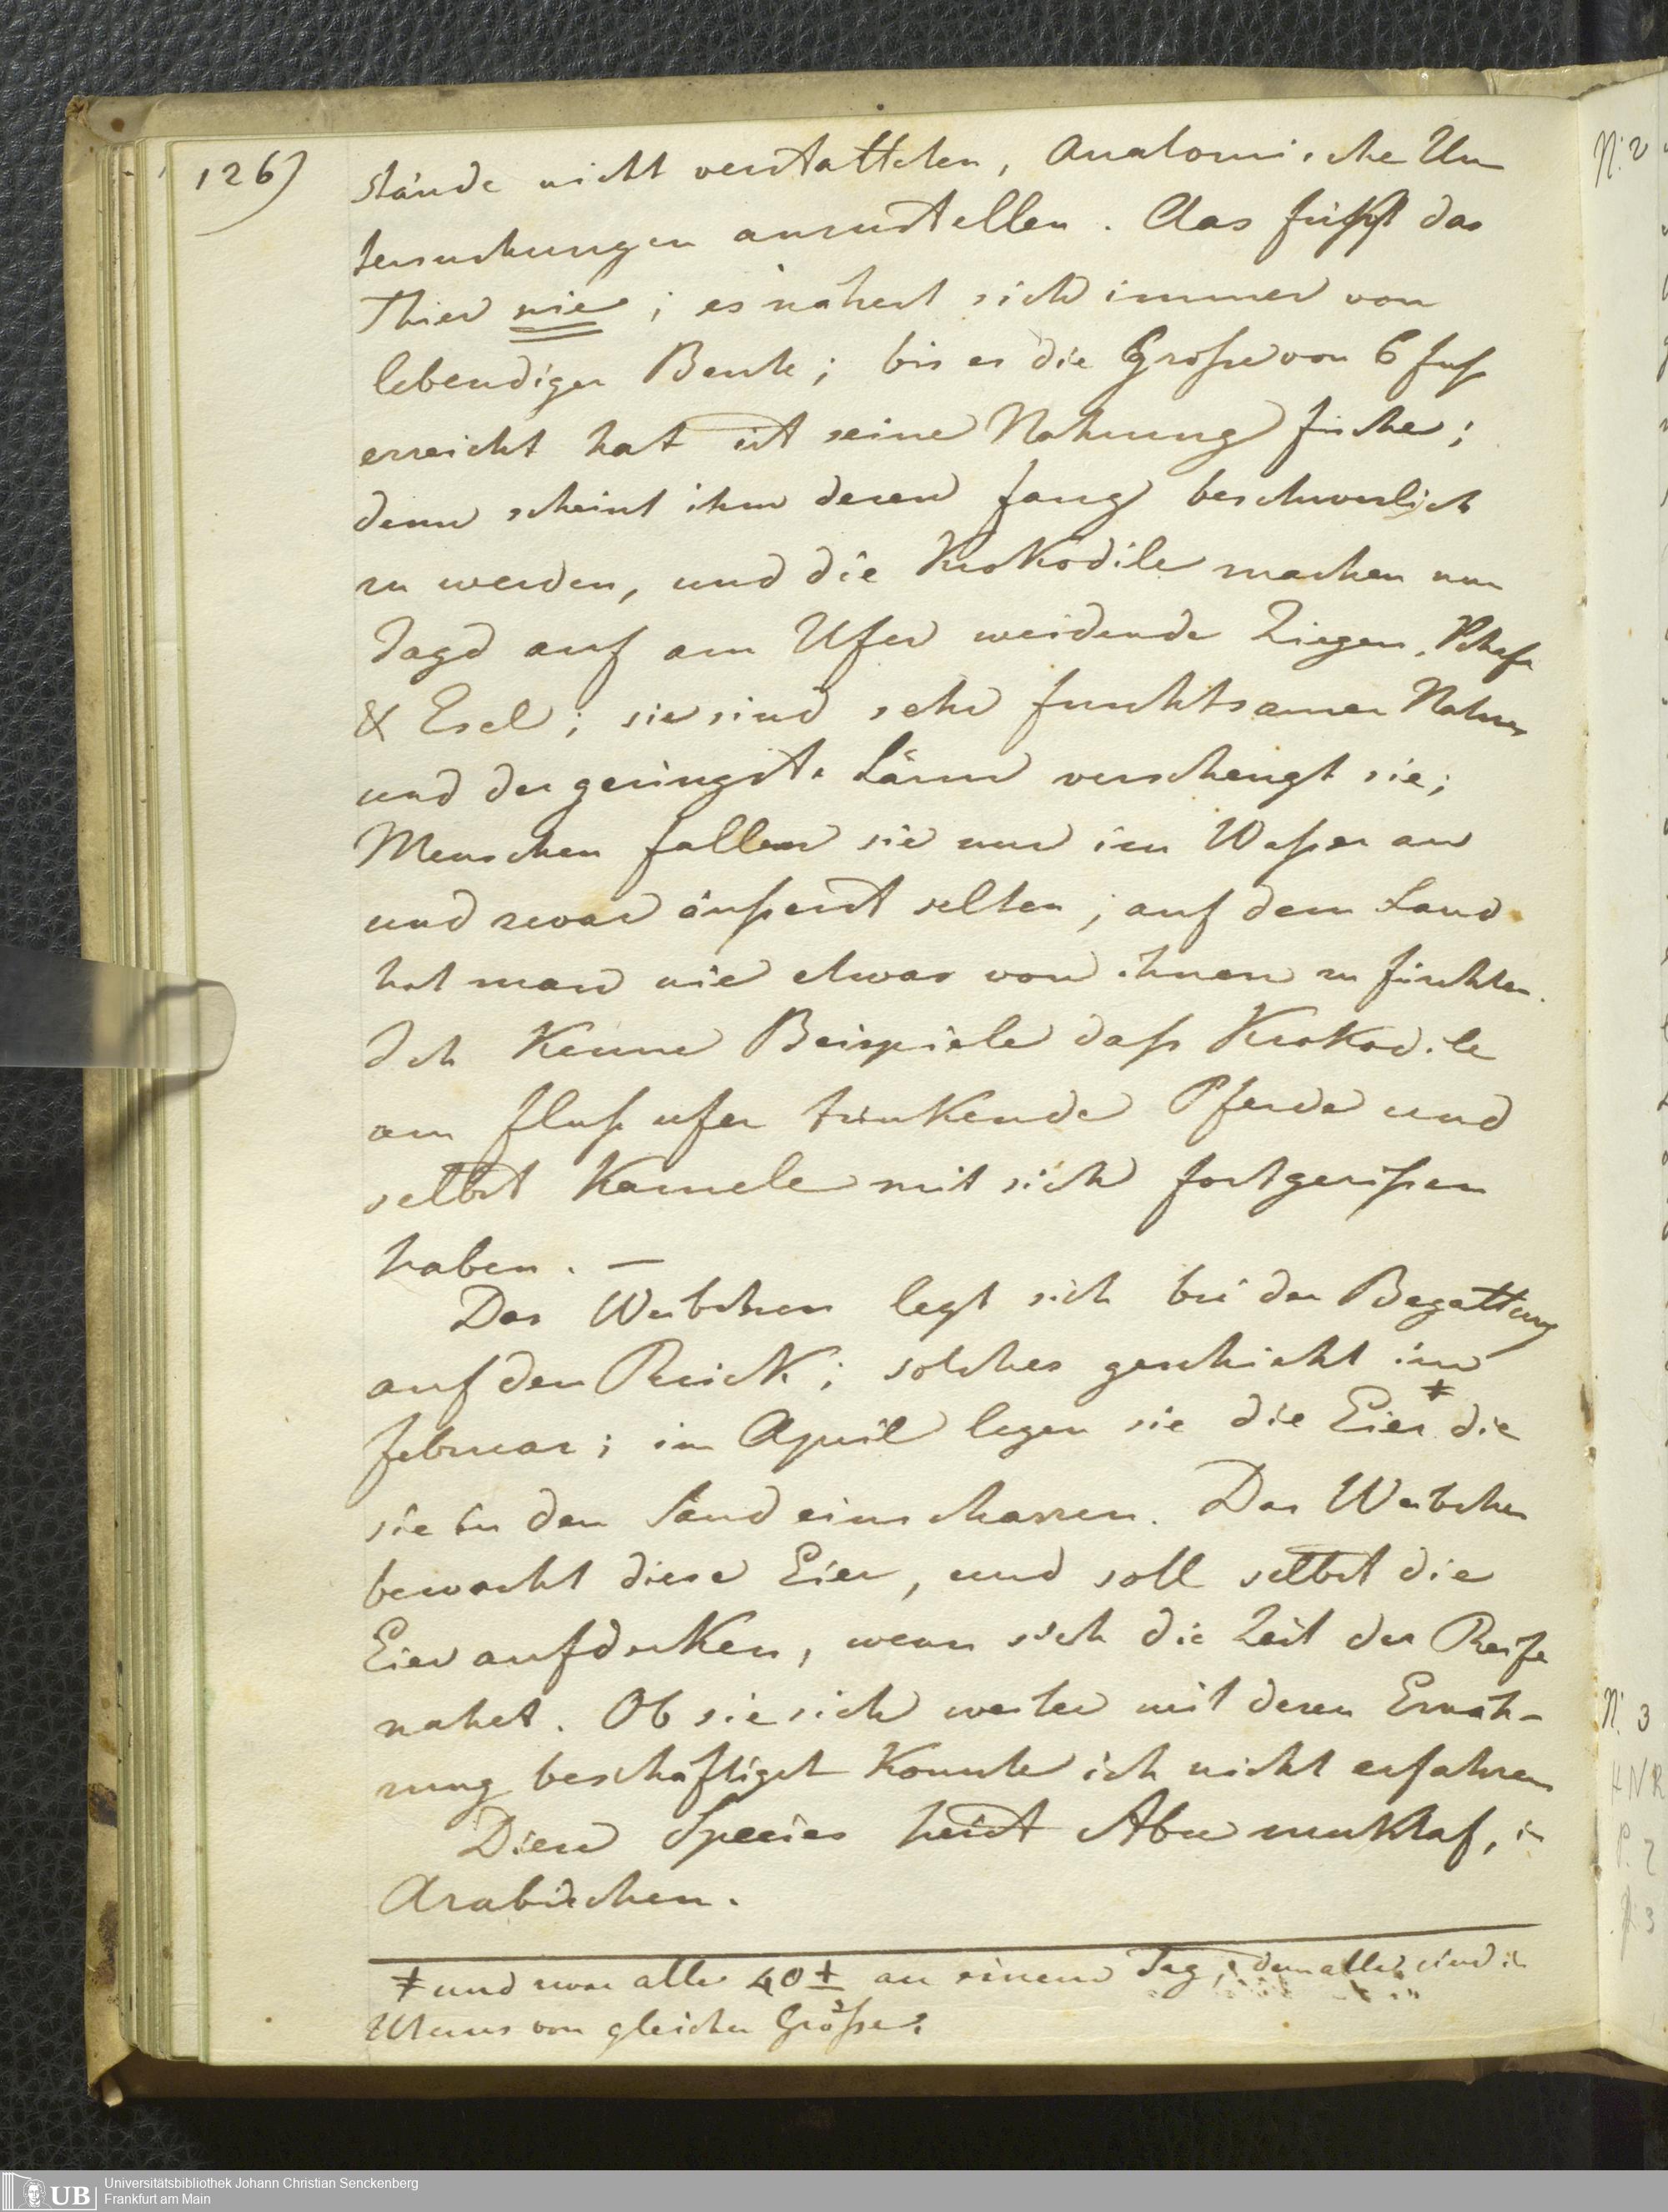 126)
stände nicht verstatteten, Anatomische Un
tersuchungen anzustellen. Aas frißt das
Thier nie; es nähert sich immer von
lebendiger Beute; bis es die Große von 6 fuß
erreicht hat ist seine Nahrung fische;
denn scheint ihm deren fang beschwerlich
zu werden, und die Krokodile machen nun
Jagd auf am Ufer weidende Ziegen, Schafe
& Esel; sie sind sehr furchtsamer Natur
und der geringste Lärm verscheugt sie;
Menschen fallen sie nur im Waßer an
und zwar äußerst selten; auf dem Land
hat man nie etwas von ihnen zu fürchten.
Ich Kenne Beispiele daß Krokodile
am flußufer trinkende Pferde und
selbst Kamele mit sich fortgerißen
haben. —
Das Weibchen legt sich bei der Begattung
auf den Rück; solches geschieht im
februar; im April legen sie die Eier ǂ die
sie in den Sand einscharren. Das Weibchen
bewacht diese Eier, und soll selbst die
Eier aufdecken, wenn sich die Zeit der Reife
nahet. Ob sie sich weiter mit deren Ernäh-
rung beschäftiget Konnte ich nicht erfahren
Diese Species heist Abu , in
Arabischen.
ǂ und zwar alle 40 ± an einem Tag, denn alle sind in
Uterus von gleicher Größe.
N: 2
N: 3
Universitätsbibliothek Johann Christian Senckenberg
Frankfurt am Main
UB